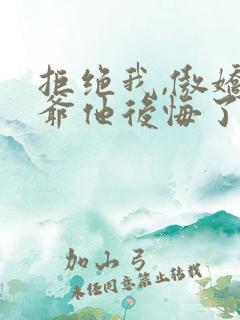 拒绝我,傲娇
爺他後悔了
加山弓
未经同意禁止转载